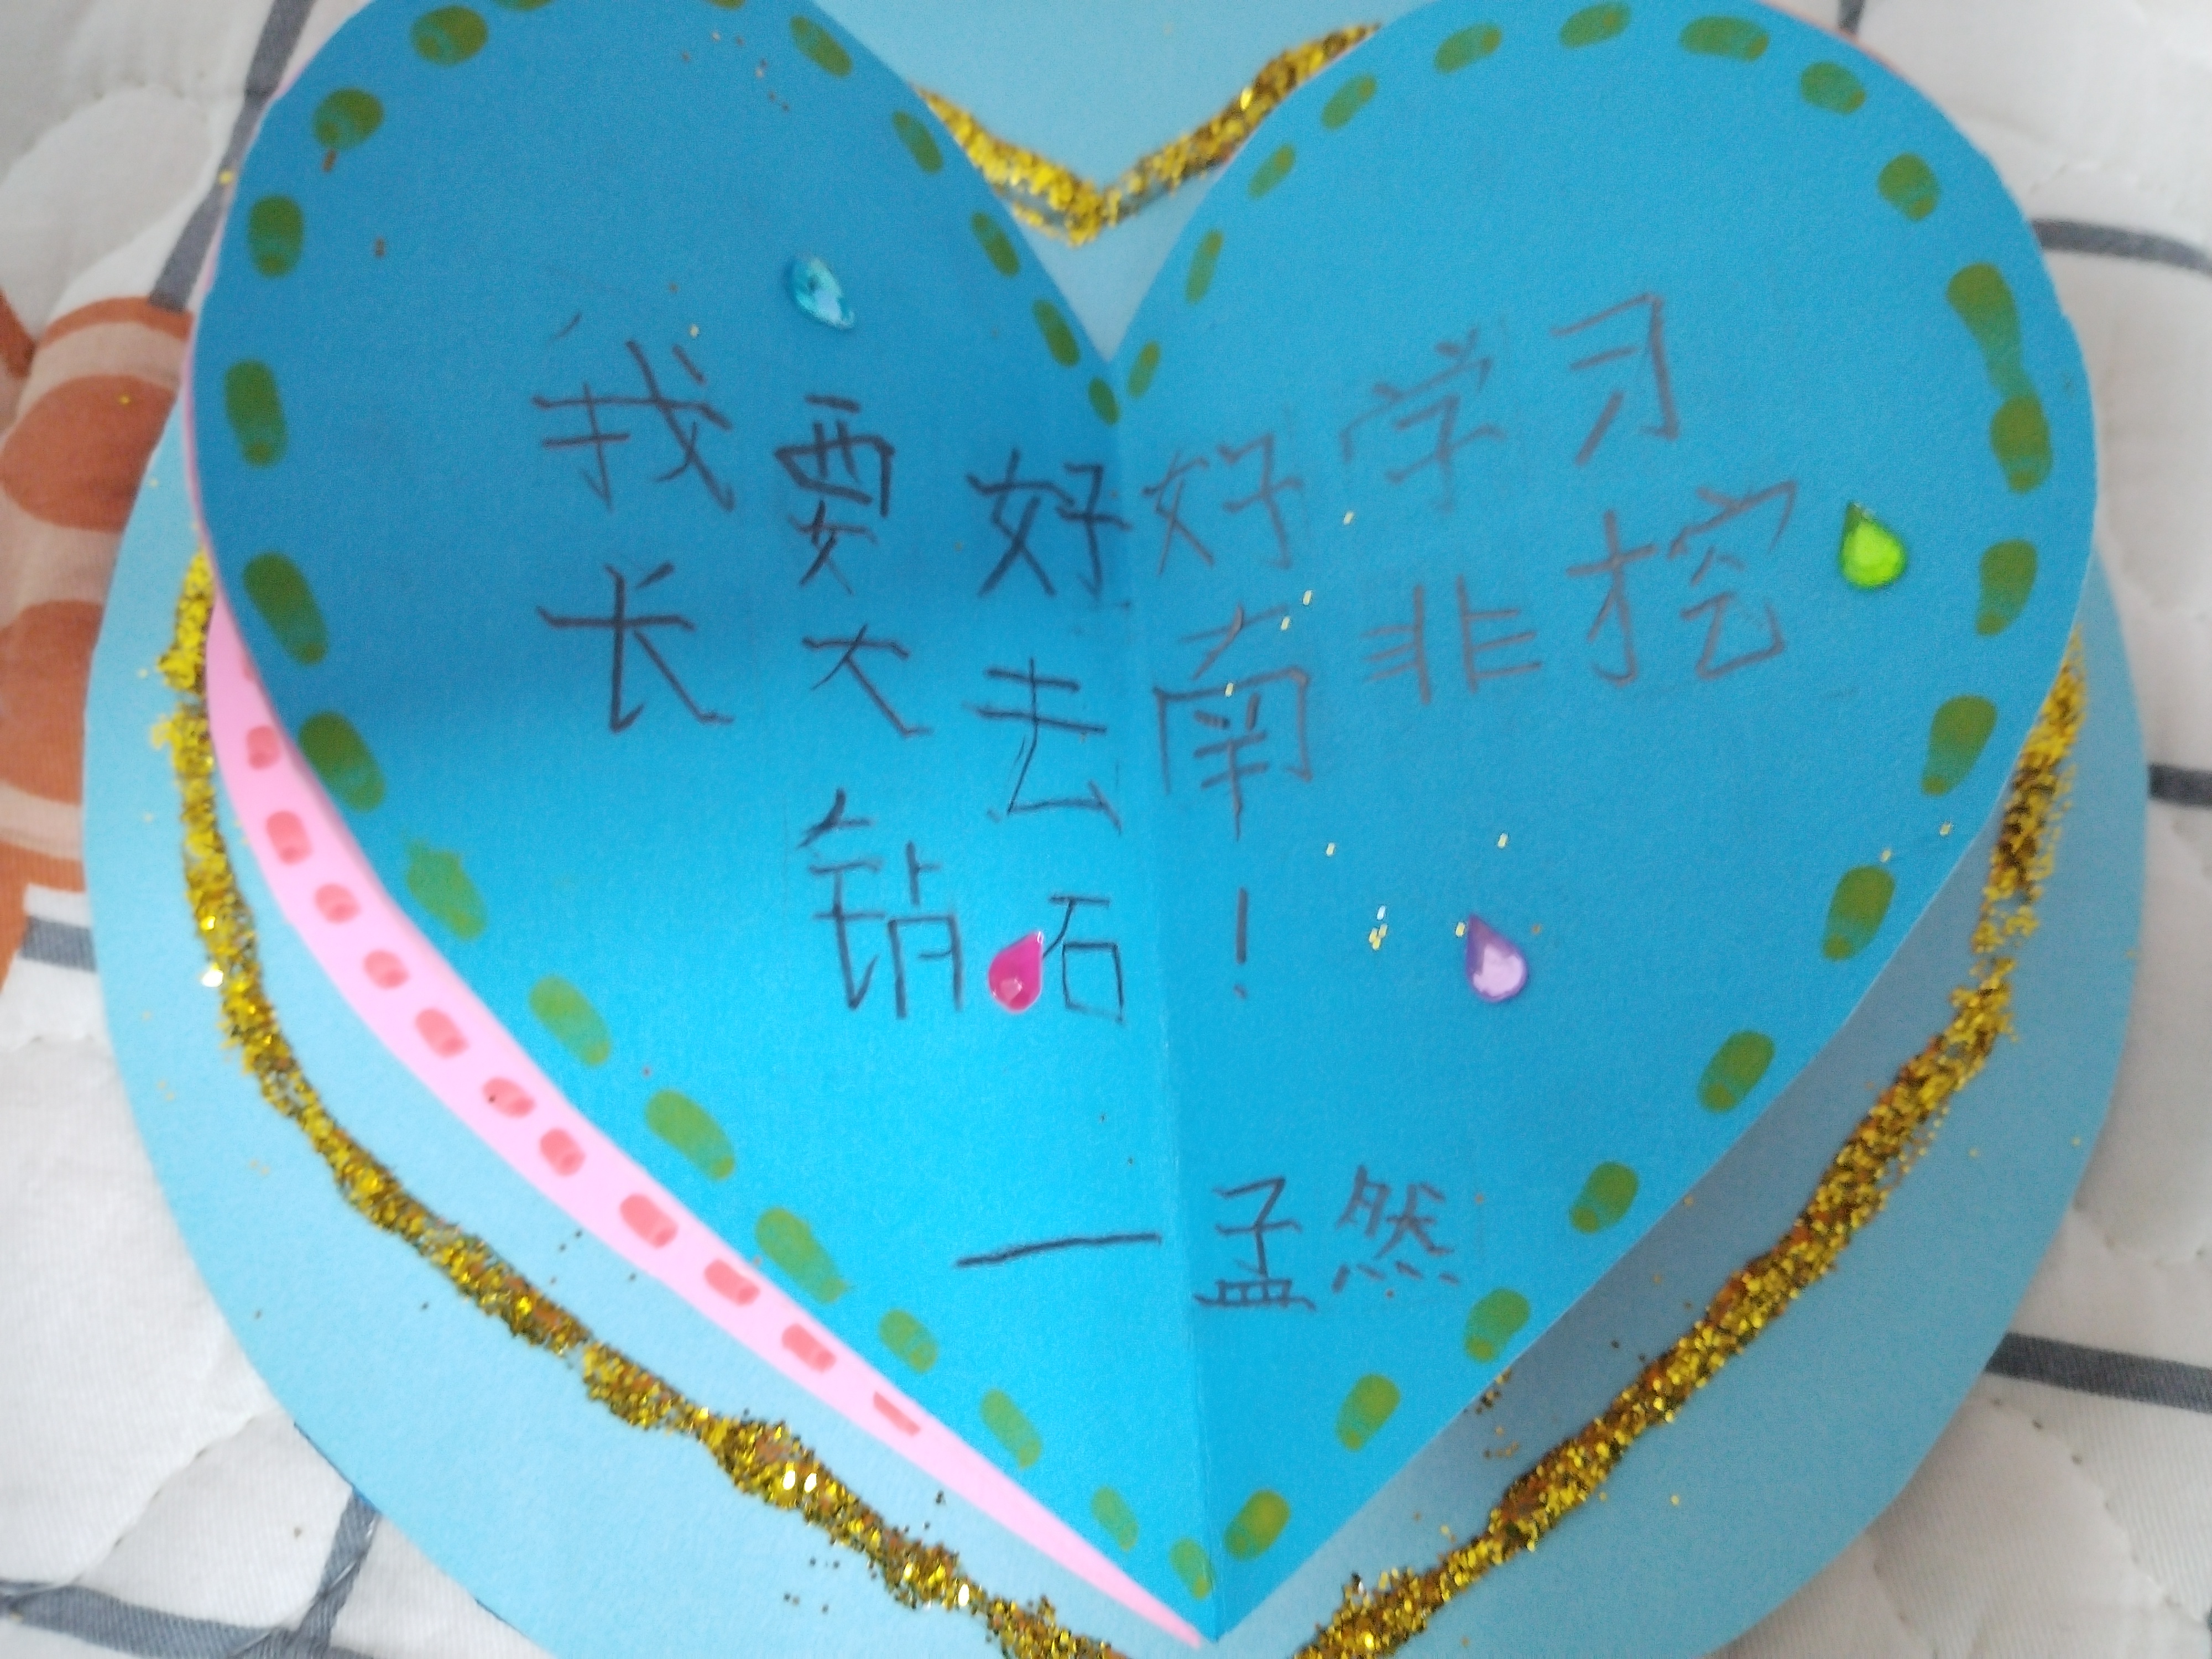 我要好好学习
长大去南非挖
钻石!
—孟然